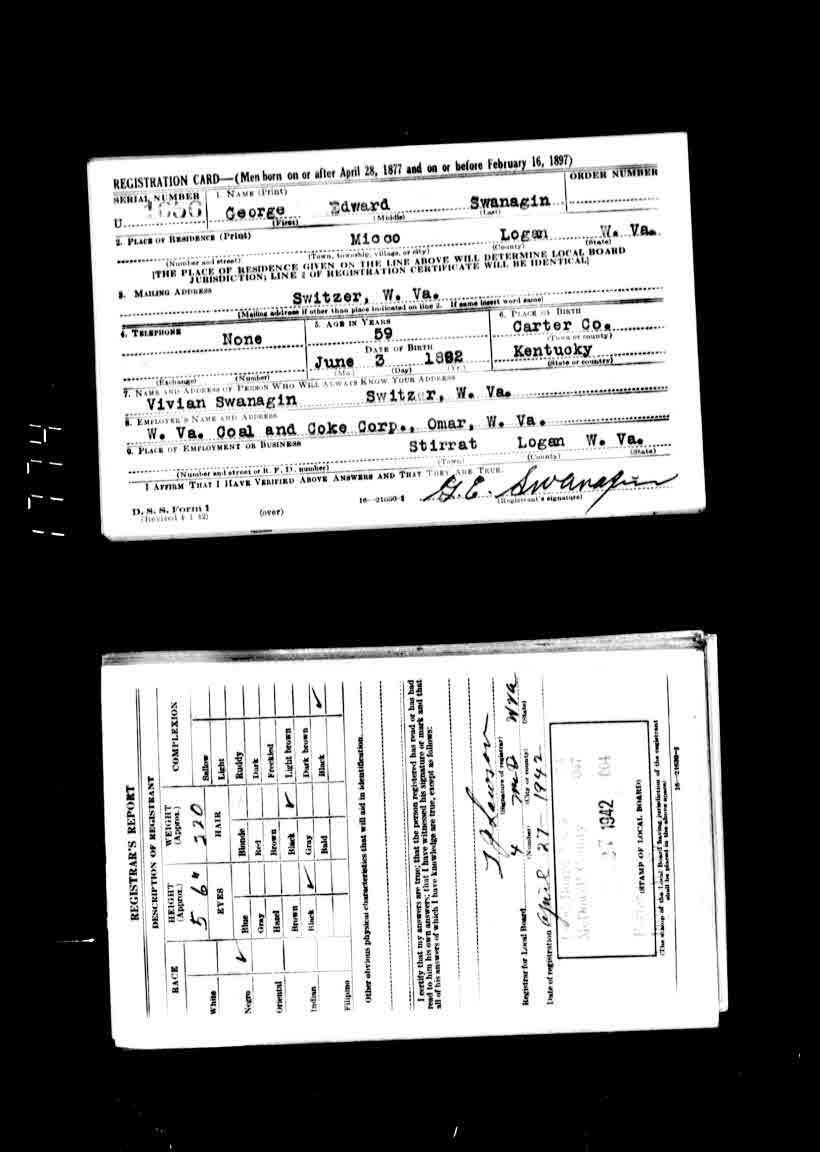 REGISTRATION CARD—(Men born on or after April 28, 1877 and on or before February 16, 1897)
SERIAL NUMBER 1. NAME (Print) ORDER NUMBER
U George Edward Swanagin
(First) (Middle) (Last)
2. PLACE OF RESIDENCE (Print)
Micco Logan W. Va.
(Number and street) (Town, township, village, or city) (County) (State)
[THE PLACE OF RESIDENCE GIVEN ON THE LINE ABOVE WILL DETERMINE LOCAL BOARD
JURISDICTION; LINE 2 OF REGISTRATION CERTIFICATE WILL BE IDENTICAL]
3. MAILING ADDRESS
Switzer, W. Va.
(Mailing address if other than place indicated on line 2. If same insert word same)
4. TELEPHONE 5. AGE IN YEARS 6. PLACE OF BIRTH
None 59 Carter Co.
DATE OF BIRTH (Town or county)
June 3 1882 Kentucky
(Exchange) (Number) (Mo.) (Day) (Yr.) (State or country)
7. NAME AND ADDRESS OF PERSON WHO WILL ALWAYS KNOW YOUR ADDRESS
Vivian Swanagin Switzer, W. Va.
8. EMPLOYER'S NAME AND ADDRESS
W. Va. Coal and Coke Corp., Omar, W. Va.
9. PLACE OF EMPLOYMENT OR BUSINESS
Stirrat Logan W. Va.
(Number and street or R. F. D. number) (Town) (County) (State)
I AFFIRM THAT I HAVE VERIFIED ABOVE ANSWERS AND THAT THEY ARE TRUE.
G. E. Swanagin
D. S. S. Form 1
(Revised 4-1-42) (over) 16—21630-2 (Registrant's signature)
REGISTRAR'S REPORT
DESCRIPTION OF REGISTRANT
RACE HEIGHT (Approx.) WEIGHT (Approx.) COMPLEXION
5 6" 220
EYES HAIR
White Sallow
Light
Negro ✓ Blue Blonde Ruddy
Gray Red Dark
Oriental Hazel Brown Freckled
Brown Black ✓ Light brown
Indian Black ✓ Gray Dark brown
Bald Black ✓
Filipino
Other obvious physical characteristics that will aid in identification
I certify that my answers are true; that the person registered has read or has had
read to him his own answers; that I have witnessed his signature or mark and that
all of his answers of which I have knowledge are true, except as follows:
(Signature of registrar)
Registrar for Local Board 4 McD W Va
(Number) (City or county) (State)
Date of registration April 27 - 1942
1942
(STAMP OF LOCAL BOARD)
(The stamp of the Local Board having jurisdiction of the registrant
shall be placed in the above space)